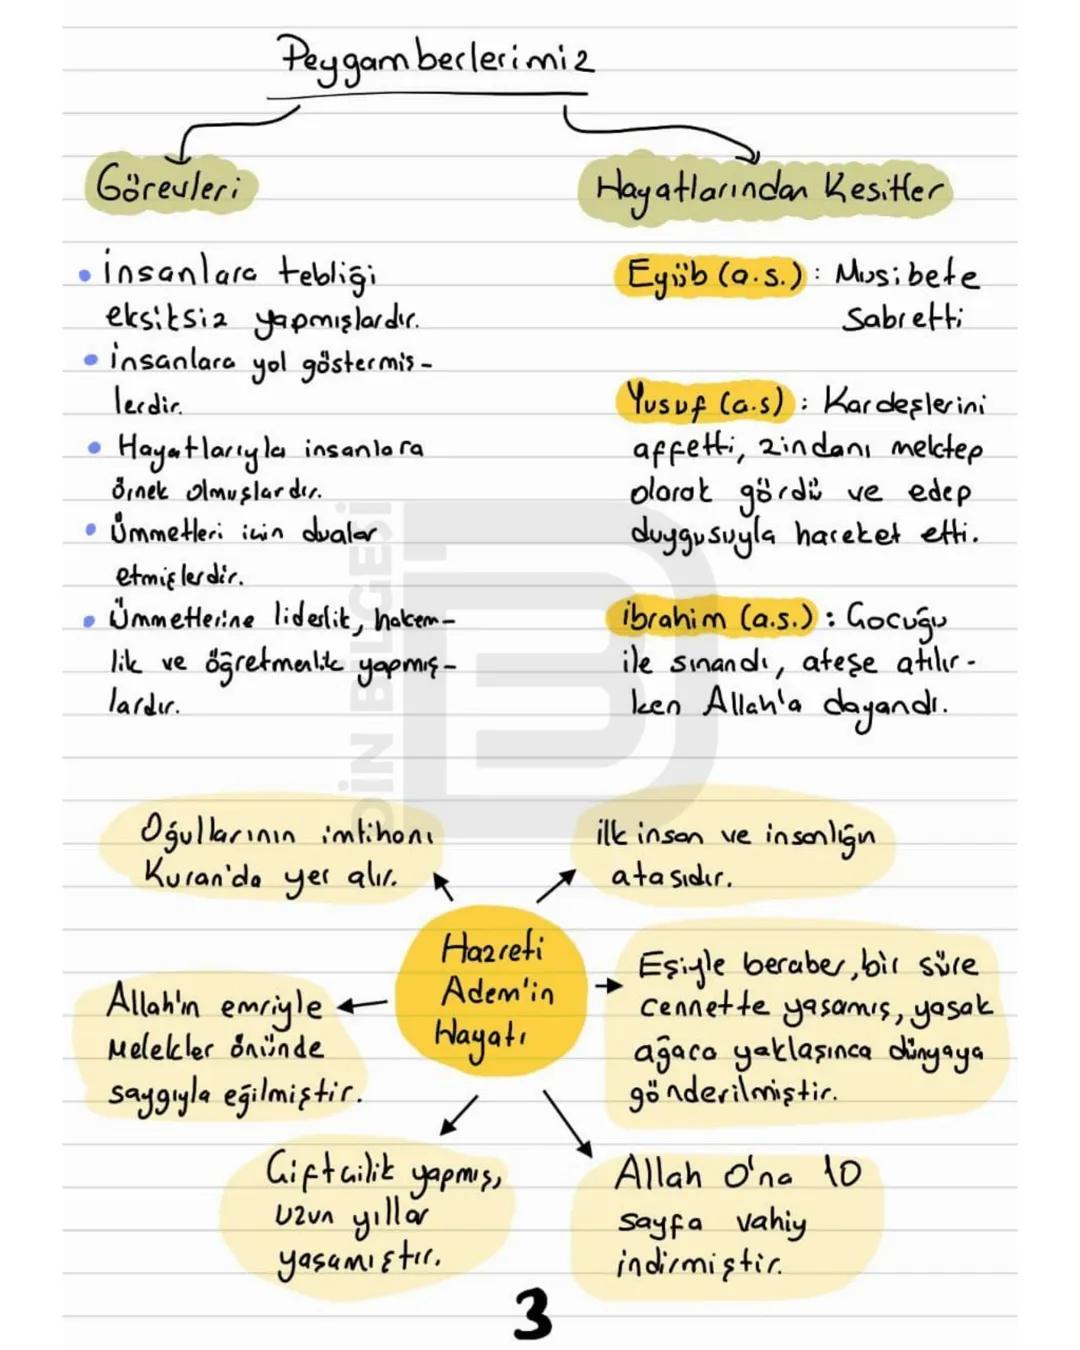 Peygamberlerimiz
Görevleri
• İnsanlara tebliği
eksiksiz yapmışlardır.
• İnsanlara yol göstermiş-
lerdir.
• Hayatlarıyla insanlara
örnek olmuşlardır.
• Ümmetleri için dualar
etmişlerdir.
• Ümmetlerine liderlik, hakem-
lik ve öğretmenlik yapmış-
lardır.
Hayatlarından Kesitler
Eyüb (a.s.) : Musibete
Sabretti
Yusuf (a.s) : Kardeşlerini
affetti, zindanı mektep
olarak gördü ve edep
duygusuyla hareket etti.
İbrahim (a.s.) : Çocuğu
ile sınandı, ateşe atılır-
ken Allah'a dayandı.
DİN BİLGESİ
Oğullarının imtihanı
Kuran'da yer alır.
ilk insan ve insanlığın
atasıdır.
Hazreti
Adem'in
Hayatı
Allah'ın emriyle
Melekler önünde
saygıyla eğilmiştir.
Eşiyle beraber, bir süre
cennette yaşamış, yasak
ağaca yaklaşınca dünyaya
gönderilmiştir.
Çiftçilik yapmış,
uzun yıllar
yaşamıştır.
Allah O'na 10
sayfa vahiy
indirmiştir.
3